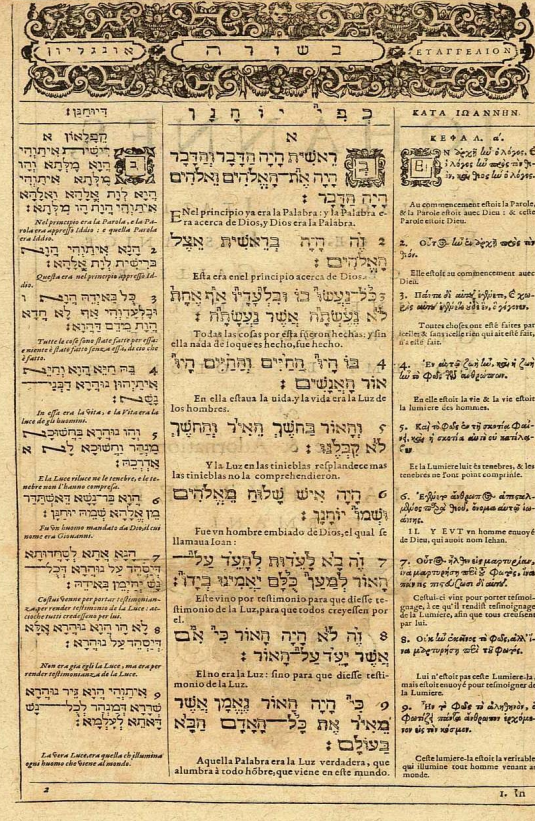 אונגליון
בשורה
ΕΥΑΓΓΕΛΙΟΝ
דיוחנן:
קפלאון א
בְּרִישִׁית אִיתוֹהִי
הֲוָא מִלְּתָא וְהוּ
מִלְּתָא אִיתוֹהִי
הֲוָא לְוָת אַלָהָא וַאלָהָא
אִיתוֹהִי הֲוָא הוּ מִלְּתָא:
Nel principio era la Parola, e la Pa-
rola era appresso Iddio : e quella Parola
era Iddio.
2 הָנָא אִיתוֹהִי הֲוָא
בְּרִישִׁית לְוָת אַלָהָא:
Questa era nel principio appresso Id-
dio.
3 כָּל בְּאִידֵהּ הֲוָא ו
וּבֶלְעָדוֹהִי אָף לָא חֲדָא
הֲוָת מִדֵּם דַּהֲוָא:
Tutte le cose sono state fatte per essa:
e niente è stato fatto senza essa, di ciò che
è fatto.
4 בֵּהּ חַיֵּא הֲוָא וְחַיֵּא
אִיתֵיהוֹן נוּהְרָא דַּבְנַי
נָשָׁא:
In essa era la Vita: e la Vita era la
luce de gli huomini.
5 וְהוּ נוּהְרָא בְּחֶשּׁוֹכָא
מַנְהַר וְחֶשּׁוֹכָא לָא
אַדְרְכֵהּ:
E la Luce riluce ne le tenebre, e le te-
nebre non l'hanno compresa.
6 הֲוָא בַּר־נָשָׁא דְּאֶשְׁתַּדַּר
מִן אַלָהָא שְׁמֵהּ יוּחַנָּן:
Fu vn huomo mandato da Dio, el cui
nome era Giouanni.
7 הָנָא אֶתָא לְסָהְדּוּתָא
דְּיִסְהַד עַל נוּהְרָא דְּכָל־
נָשׁ יְהַימֵן בְּאִידֵהּ:
Costui venne per portar testimonian-
za, per render testimonio de la Luce : ac-
cioche tutti credessero per lui.
8 לָא הוּ הֲוָא נוּהְרָא אֶלָּא
דְּיִסְהַד עַל נוּהְרָא:
Non era già egli la Luce, ma era per
render testimonianza de la Luce.
9 אִיתוֹהִי הֲוָא גֵּיר נוּהְרָא
שְׁרָרָא דְּמַנְהַר לְכָל־נָשׁ
דְּאָתֵא לְעָלְמָא:
La vera Luce, era quella ch'illumina
ogni huomo che viene al mondo.
2
כפי יוחנן
א
בְּרֵאשִׁית הָיָה הַדָּבָר וְהַדָּבָר
הָיָה אֶת־הָאֱלֹהִים וֵאלֹהִים
הָיָה הַדָּבָר :
ENel principio ya era la Palabra : y la Palabra e-
ra acerca de Dios, y Dios era la Palabra.
2 זֶה הָיָה בְּרֵאשִׁית אֵצֶל
הָאֱלֹהִים :
Esta era enel principio acerca de Dios.
3 כָּל־נַעֲשׂוּ בוֹ וּבִלְעָדָיו אַף אַחַת
לֹא נֶעֶשְׂתָה אֲשֶׁר נֶעֶשָׂתָה :
Todas las cosas por esta fueron hechas: y sin
ella nada de loque es hecho, fue hecho.
4 בּוֹ הָיוּ הַחַיִּים וְהַחַיִּים הָיוּ
אוֹר הָאֲנָשִׁים :
En ella estaua la uida. y la vida era la Luz de
los hombres.
5 וְהָאוֹר בַּחֹשֶׁךְ הֵאִיר וְהַחֹשֶׁךְ
לֹא קִבְּלָנוּ :
Y la Luz en las tinieblas resplandece mas
las tinieblas no la comprehendieron.
6 הָיָה אִישׁ שָׁלוּחַ מֵאֱלֹהִים
וּשְׁמוֹ יוֹחָנָן :
Fue vn hombre embiado de Dios, el qual se
llamaua Ioan :
7 זֶה בָּא לְעֵדוּת לְהָעֵד עַל־
הָאוֹר לְמַעַן כֻּלָּם יַאֲמִינוּ בְיָדוֹ :
Este vino por testimonio para que diesse te-
stimonio de la Luz, para que todos creyessen por
el.
8 זֶה לֹא הָיָה הָאוֹר כִּי אִם
אֲשֶׁר יָעֵד עַל־הָאוֹר :
El no era la Luz : sino para que diesse testi-
monio de la Luz.
9 כִּי הָיָה הָאוֹר נֶאֱמָן אֲשֶׁר
מֵאִיר אֶת כָּל־הָאָדָם הַבָּא
בָּעוֹלָם :
Aquella Palabra era la Luz verdadera, que
alumbra à todo hõbre, que viene en este mundo.
ΚΑΤΑ ΙΩΑΝΝΗΝ.
ΚΕΦΑΛ. α΄.
ΕΝ ἀρχῇ ἦν ὁ λόγος, καὶ
ὁ λόγος ἦν πρὸς τὸν θε-
όν, καὶ θεὸς ἦν ὁ λόγος.
Au commencement estoit la Parole,
& la Parole estoit auec Dieu : & ceste
Parole estoit Dieu.
2. Οὗτος ἦν ἐν ἀρχῇ πρὸς τὸν
θεόν.
Elle estoit au commencement auec
Dieu.
3. Πάντα δι' αὐτοῦ ἐγένετο, καὶ χω-
ρὶς αὐτοῦ ἐγένετο οὐδὲ ἓν, ὃ γέγονεν.
Toutes choses ont esté faites par
icelle: & sans icelle rien qui ait esté fait,
n'a esté fait.
4. Ἐν αὐτῷ ζωὴ ἦν, καὶ ἡ ζωὴ
ἦν τὸ φῶς τῶν ἀνθρώπων.
En elle estoit la vie & la vie estoit
la lumiere des hommes.
5. Καὶ τὸ φῶς ἐν τῇ σκοτίᾳ φαί-
νει, καὶ ἡ σκοτία αὐτὸ οὐ κατέλα-
βεν.
Et la Lumiere luit és tenebres, & les
tenebres ne l'ont point comprinse.
6. Ἐγένετο ἄνθρωπος ἀπεσταλ-
μένος παρὰ θεοῦ, ὄνομα αὐτῷ ἰω-
άννης.
IL Y EVT vn homme enuoyé
de Dieu, qui auoit nom Iehan.
7. Οὗτος ἦλθεν εἰς μαρτυρίαν,
ἵνα μαρτυρήσῃ περὶ τοῦ φωτὸς, ἵνα
πάντες πιστεύσωσι δι' αὐτοῦ.
Cestui-ci vint pour porter tesmoi-
gnage, à ce qu'il rendist tesmoignage
de la Lumiere, afin que tous creussent
par lui.
8. Οὐκ ἦν ἐκεῖνος τὸ φῶς, ἀλλ' ἵ-
να μαρτυρήσῃ περὶ τοῦ φωτός.
Lui n'estoit pas ceste Lumiere-la,
mais estoit enuoyé pour tesmoigner de
la Lumiere.
9. Ἦν τὸ φῶς τὸ ἀληθινὸν, ὃ
φωτίζει πάντα ἄνθρωπον ἐρχόμε-
νον εἰς τὸν κόσμον.
Ceste lumiere-la estoit la veritable
qui illumine tout homme venant au
monde.